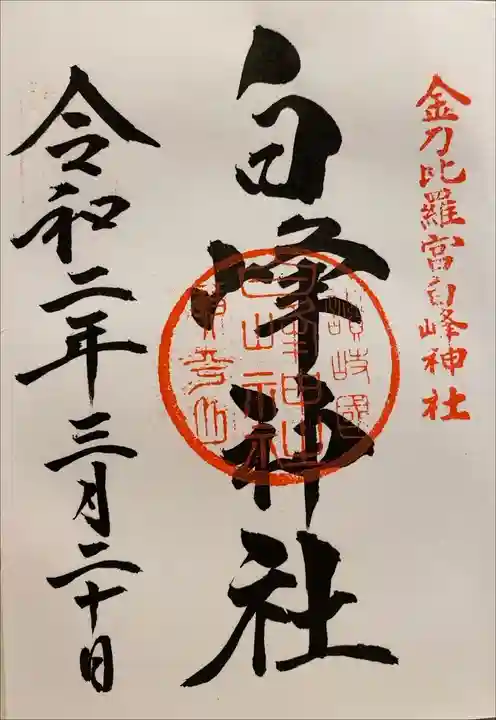 金刀比羅宮白峰神社
白峰神社
讃岐國
白峰神社
令和二年三月二十日